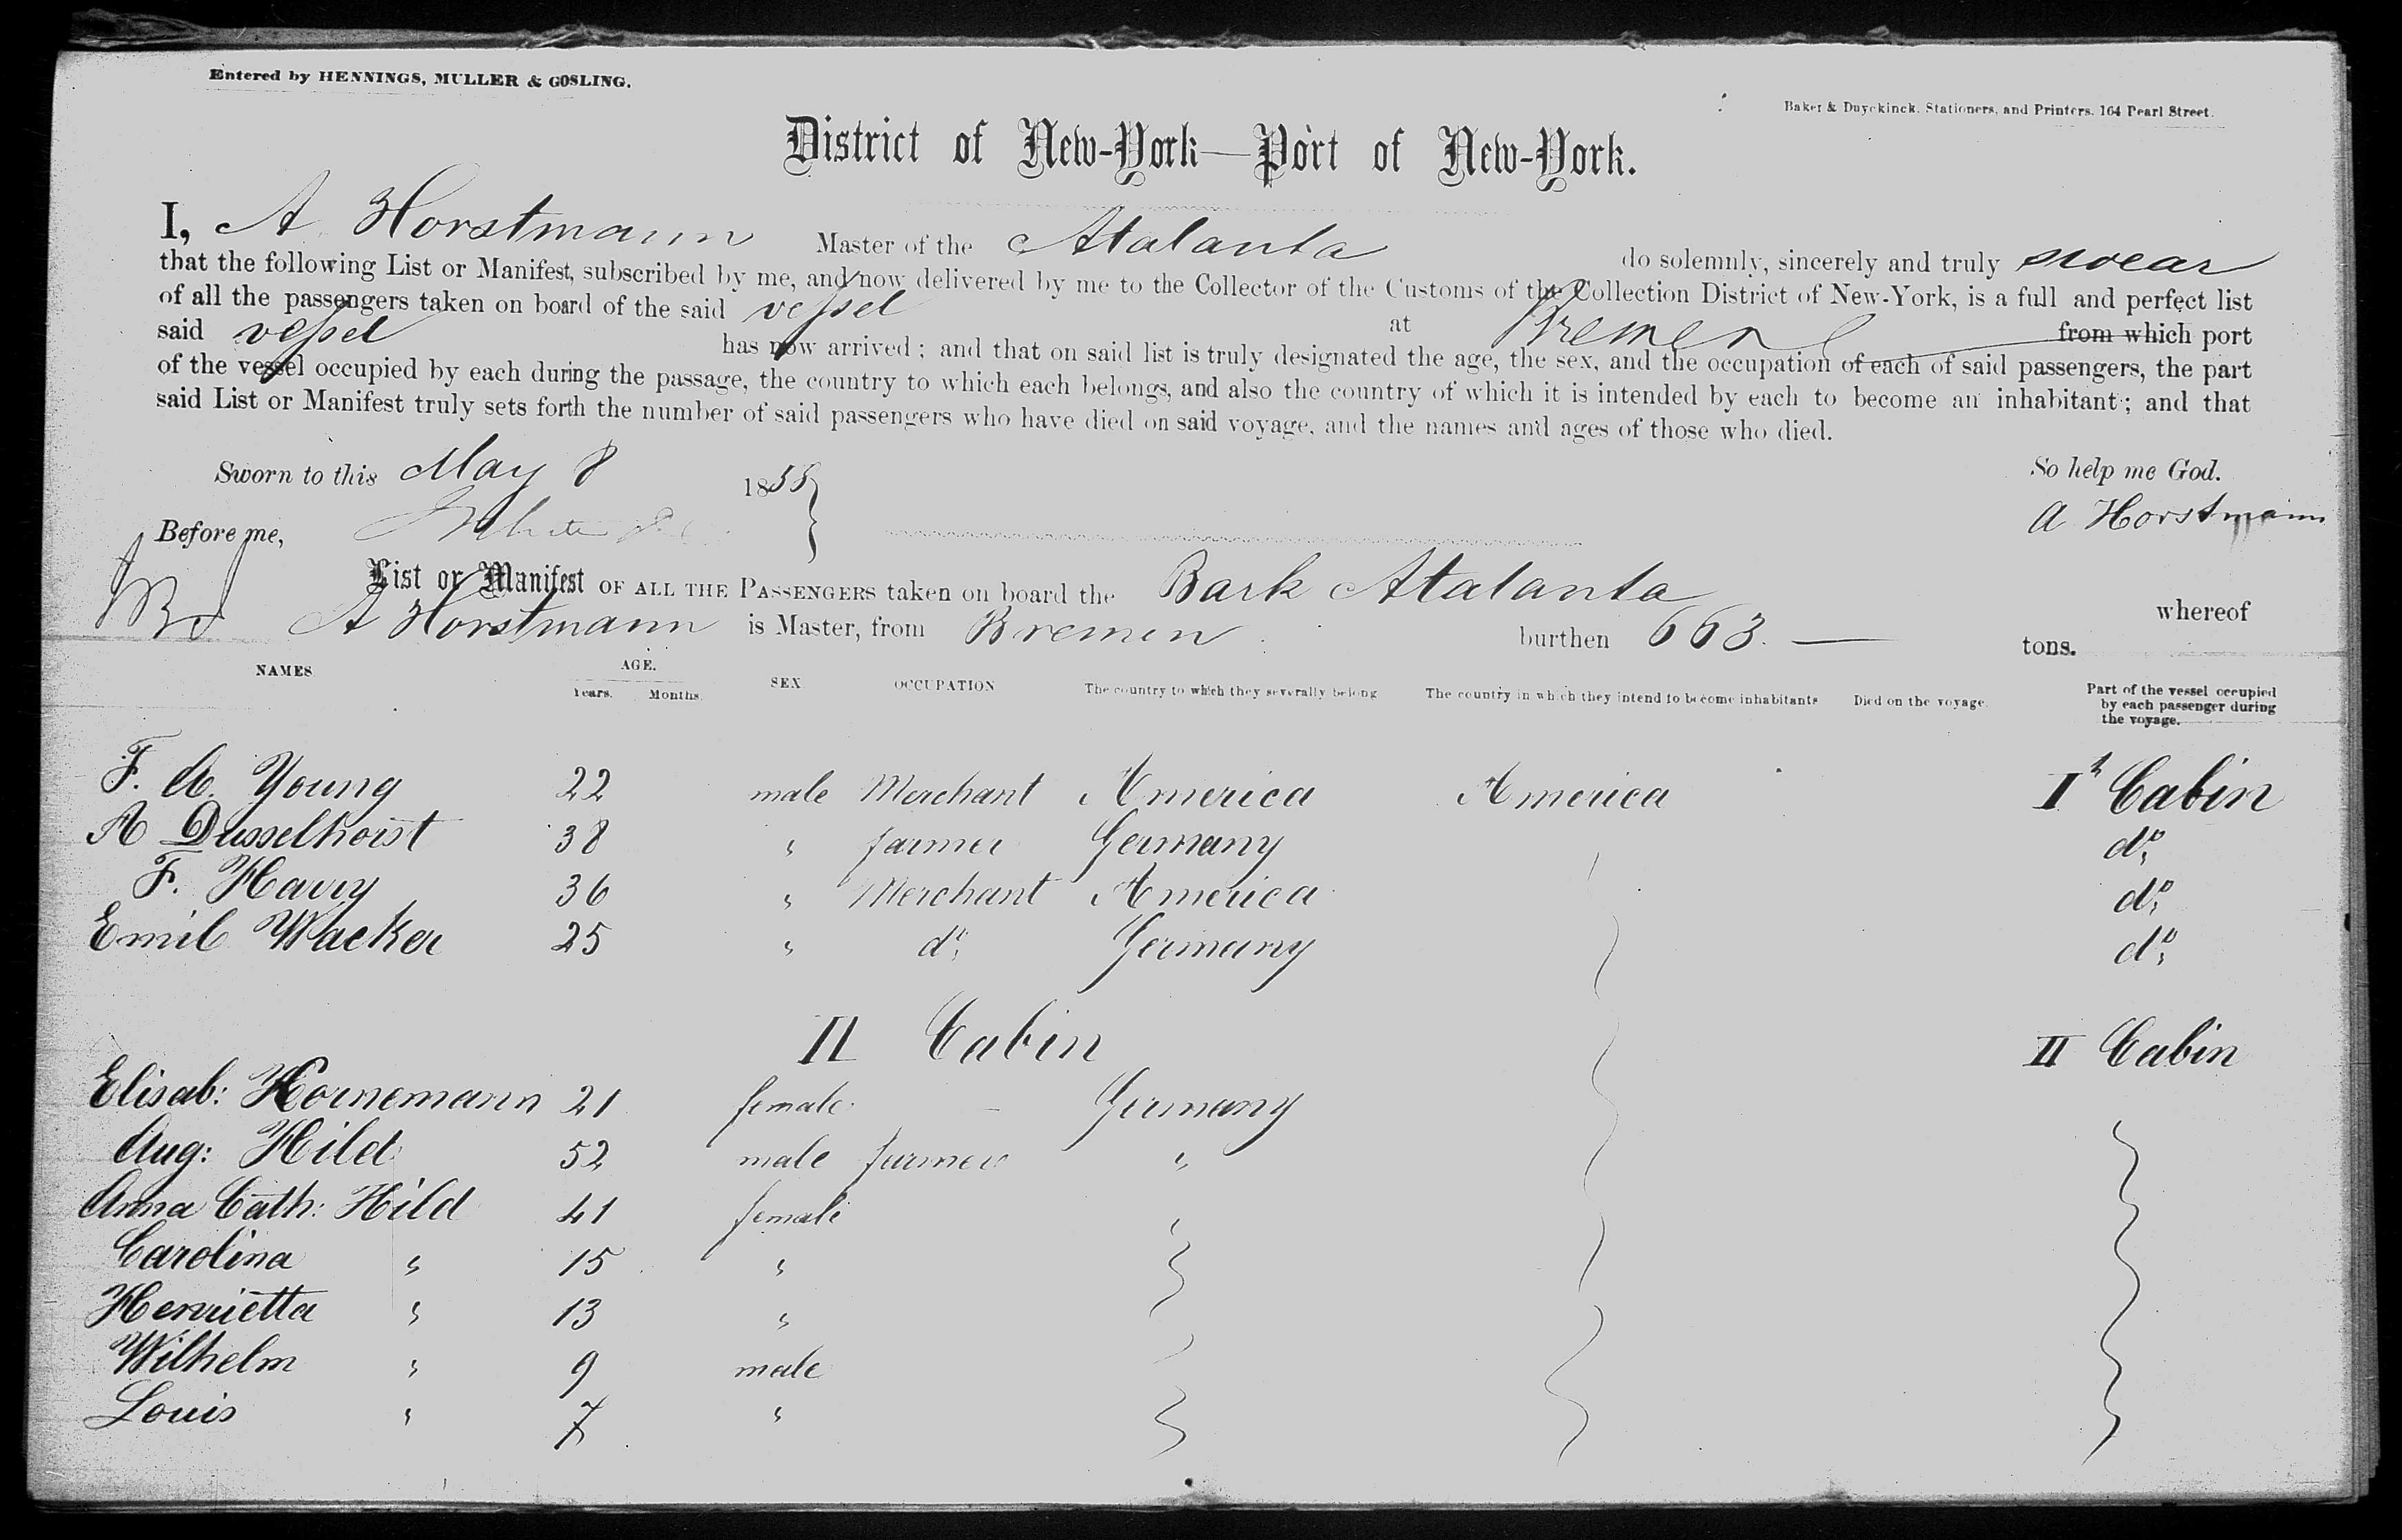 Entered by HENNINGS, MULLER & GOSLING.
Baker & Duyckinck, Stationers, and Printers, 164 Pearl Street.
District of New-York—Port of New-York.
I, A Horstmann Master of the Atalanta do solemnly, sincerely and truly swear
that the following List or Manifest, subscribed by me, and now delivered by me to the Collector of the Customs of the Collection District of New-York, is a full and perfect list
of all the passengers taken on board of the said vessel at Bremen from which port
said vessel has now arrived; and that on said list is truly designated the age, the sex, and the occupation of each of said passengers, the part
of the vessel occupied by each during the passage, the country to which each belongs, and also the country of which it is intended by each to become an inhabitant; and that
said List or Manifest truly sets forth the number of said passengers who have died on said voyage, and the names and ages of those who died.
Sworn to this May 8 1855
So help me God.
Before me,
A Horstmann
List or Manifest OF ALL THE PASSENGERS taken on board the Bark Atalanta whereof
A Horstmann is Master, from Bremen burthen 663. — tons.
NAMES AGE. Years. Months. SEX OCCUPATION The country to which they severally belong The country in which they intend to become inhabitants Died on the voyage. Part of the vessel occupied by each passenger during the voyage.
F. A. Young 22 male Merchant America America I Cabin
A Dusselhorst 38 " farmer Germany do
F. Havry 36 " Merchant America do
Emil Wacker 25 " do Germany do
II Cabin II Cabin
Elisab: Hornemann 21 female — Germany
Aug: Hild 52 male farmer "
Anna Cath: Hild 41 female
Carolina " 15 "
Henrietta " 13 "
Wilhelm " 9 male
Louis " 7 "